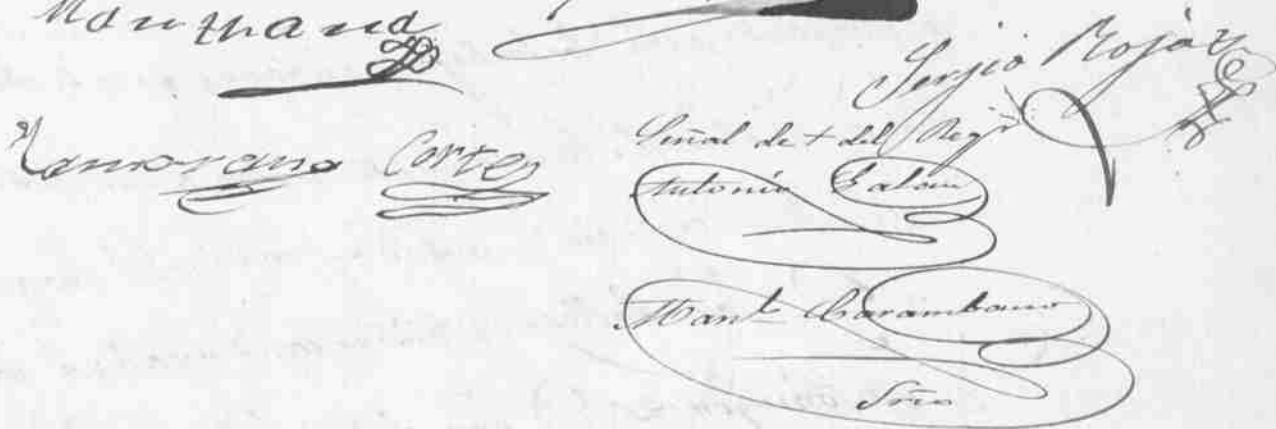 Sergio Rojas
Zamorano Cortes
Señal de + del Reg.r
Antonio
Man.l Carambano
Srio